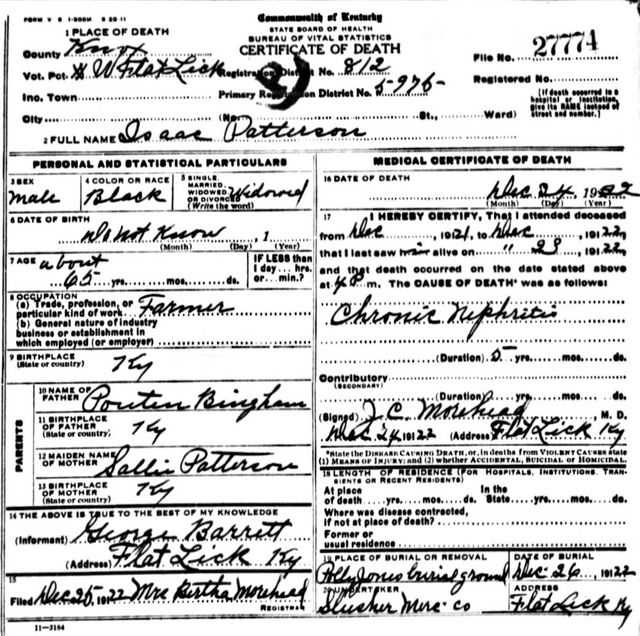 FORM V S 1-500M 6 20 11
Commonwealth of Kentucky
STATE BOARD OF HEALTH
BUREAU OF VITAL STATISTICS
CERTIFICATE OF DEATH
1 PLACE OF DEATH
County Knox
Vot. Pct. W Flat Lick Registration District No. 812
File No. 27774
Inc. Town Primary Registration District No. 5-975-
Registered No.
City (No. St., Ward)
[If death occurred in a hospital or institution, give its NAME instead of street and number.]
2 FULL NAME Isaac Patterson
PERSONAL AND STATISTICAL PARTICULARS
3 SEX Male
4 COLOR OR RACE Black
5 SINGLE, MARRIED, WIDOWED OR DIVORCED (Write the word) Widowed
6 DATE OF BIRTH
Do not Know, 1
(Month) (Day) (Year)
7 AGE about
65 yrs. mos. ds.
IF LESS than 1 day hrs. or min.?
8 OCCUPATION
(a) Trade, profession, or particular kind of work Farmer
(b) General nature of industry business or establishment in which employed (or employer)
9 BIRTHPLACE (State or country) Ky
PARENTS
10 NAME OF FATHER Bingham
11 BIRTHPLACE OF FATHER (State or country) Ky
12 MAIDEN NAME OF MOTHER Sallie Patterson
13 BIRTHPLACE OF MOTHER (State or country) Ky
14 THE ABOVE IS TRUE TO THE BEST OF MY KNOWLEDGE
(Informant) George Barrett
(Address) Flat Lick Ky
15
Filed Dec 25, 1922 Mrs Bertha Morehead
REGISTRAR
11-3184
MEDICAL CERTIFICATE OF DEATH
16 DATE OF DEATH
Dec 24 1922
(Month) (Day) (Year)
17 I HEREBY CERTIFY, That I attended deceased
from Dec, 1921, to Dec, 19122,
that I last saw him alive on " 23, 19122,
and that death occurred on the date stated above
at 4 P m. The CAUSE OF DEATH* was as follows:
Chronic Nephritis
(Duration) 5 yrs. mos. ds.
Contributory
(SECONDARY)
(Duration) yrs. mos. ds.
(Signed) J. C. Morehead, M. D.
Dec 24, 19122 (Address) Flat Lick Ky
*State the DISEASE CAUSING DEATH, or, in deaths from VIOLENT CAUSES state (1) MEANS OF INJURY; and (2) whether ACCIDENTAL, SUICIDAL or HOMICIDAL.
18 LENGTH OF RESIDENCE (FOR HOSPITALS, INSTITUTIONS, TRANSIENTS OR RECENT RESIDENTS)
At place of death yrs. mos. ds. In the State yrs. mos. ds.
Where was disease contracted, if not at place of death?
Former or usual residence
19 PLACE OF BURIAL OR REMOVAL
Polly Jones burial ground
DATE OF BURIAL
Dec 26, 19122
20 UNDERTAKER
Slusher Merc Co
ADDRESS
Flat Lick Ky